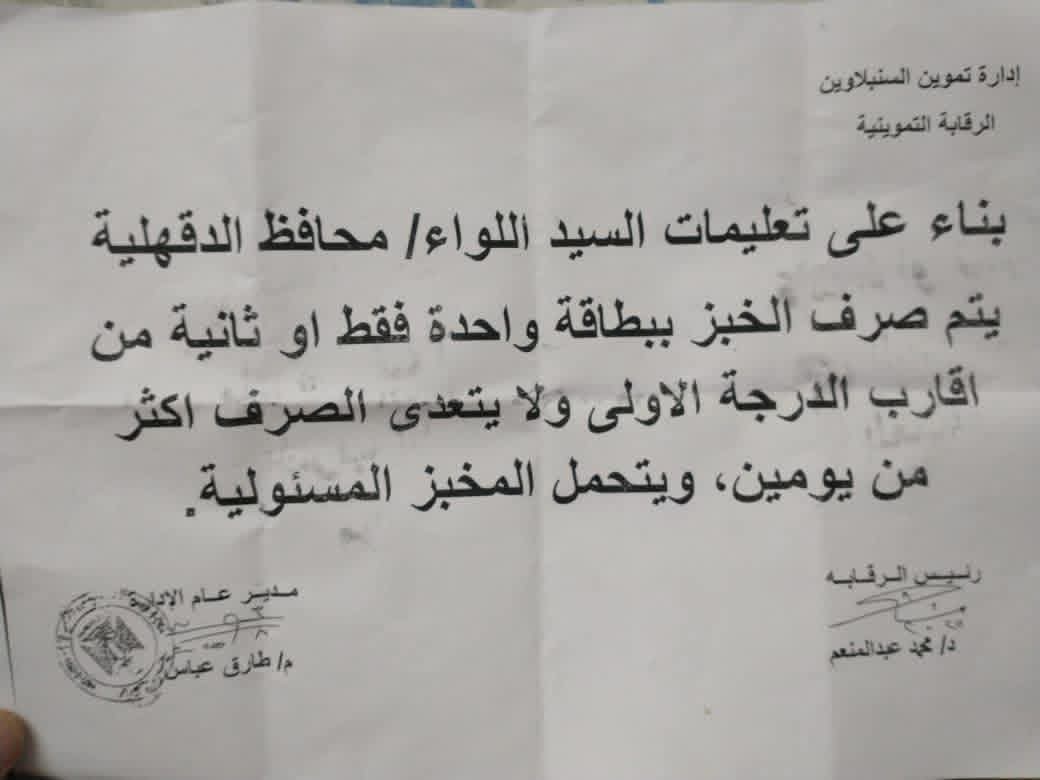 إدارة تموين السنبلاوين
الرقابة التموينية
بناء على تعليمات السيد اللواء/ محافظ الدقهلية
يتم صرف الخبز ببطاقة واحدة فقط او ثانية من
اقارب الدرجة الاولى ولا يتعدى الصرف اكثر
من يومين، ويتحمل المخبز المسئولية.
رئيس الرقابه
د/ محمد عبدالمنعم
مدير عام الإدارة
م/ طارق عباس